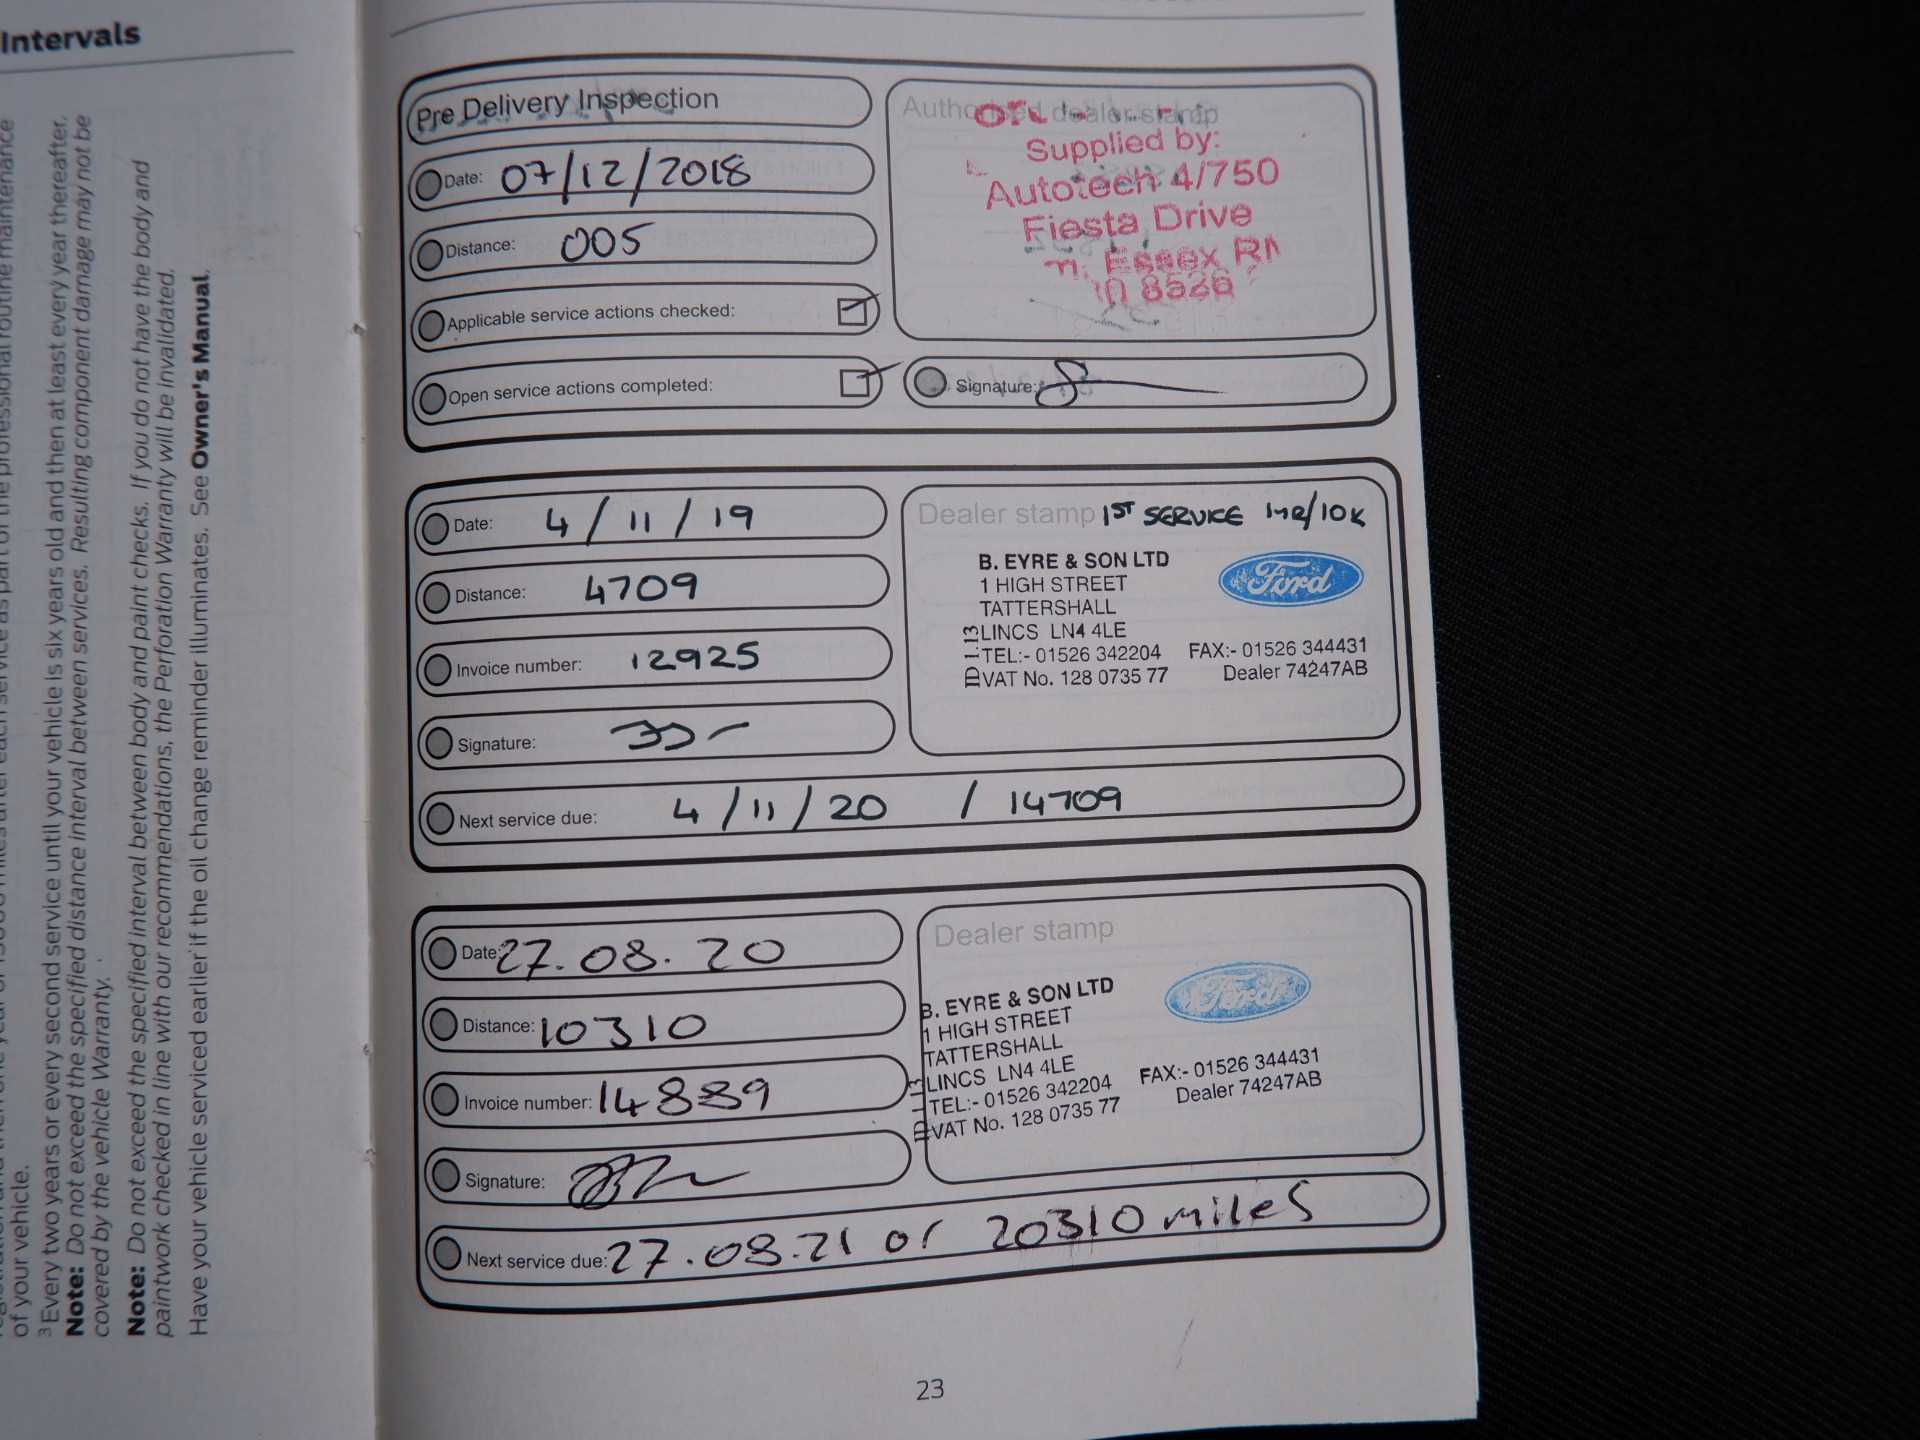 Intervals
of your vehicle.
3 Every two years or every second service until your vehicle is six years old and then at least every year thereafter.
Note: Do not exceed the specified distance interval between services. Resulting component damage may not be
covered by the vehicle Warranty.
Note: Do not exceed the specified interval between body and paint checks. If you do not have the body and
paintwork checked in line with our recommendations, the Perforation Warranty will be invalidated.
Have your vehicle serviced earlier if the oil change reminder illuminates. See Owner's Manual.
Pre Delivery Inspection
Date: 07/12/2018
Distance: 005
Applicable service actions checked:
Open service actions completed:
Authorised dealer stamp
Supplied by:
Autotech 4/750
Fiesta Drive
Essex
8526
Signature:
Date: 4/11/19
Distance: 4709
Invoice number: 12925
Signature:
Next service due: 4/11/20 / 14709
Dealer stamp 1ST SERVICE 1YR/10K
B. EYRE & SON LTD
1 HIGH STREET
TATTERSHALL
LINCS LN4 4LE
TEL:- 01526 342204
VAT No. 128 0735 77
Ford
FAX:- 01526 344431
Dealer 74247AB
Date: 27.08.20
Distance: 10310
Invoice number: 14889
Signature:
Next service due: 27.08.21 or 20310 miles
Dealer stamp
B. EYRE & SON LTD
1 HIGH STREET
TATTERSHALL
LINCS LN4 4LE
TEL:- 01526 342204
VAT No. 128 0735 77
Ford
FAX:- 01526 344431
Dealer 74247AB
23